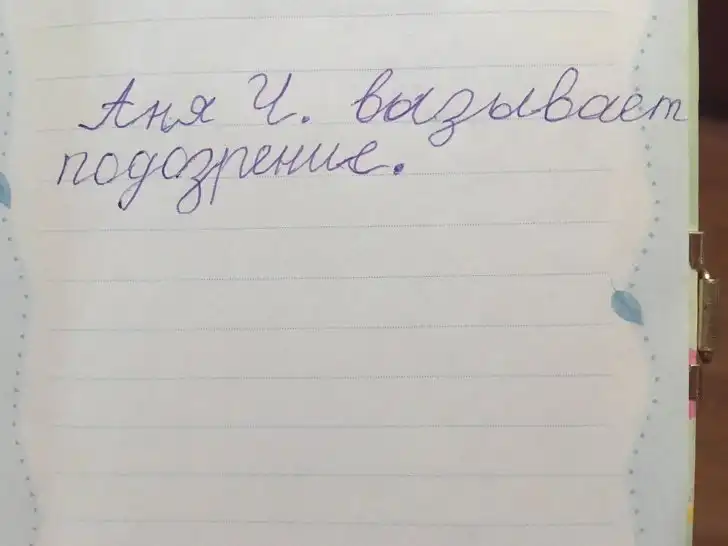 Аня Ч. вызывает
подозрение.